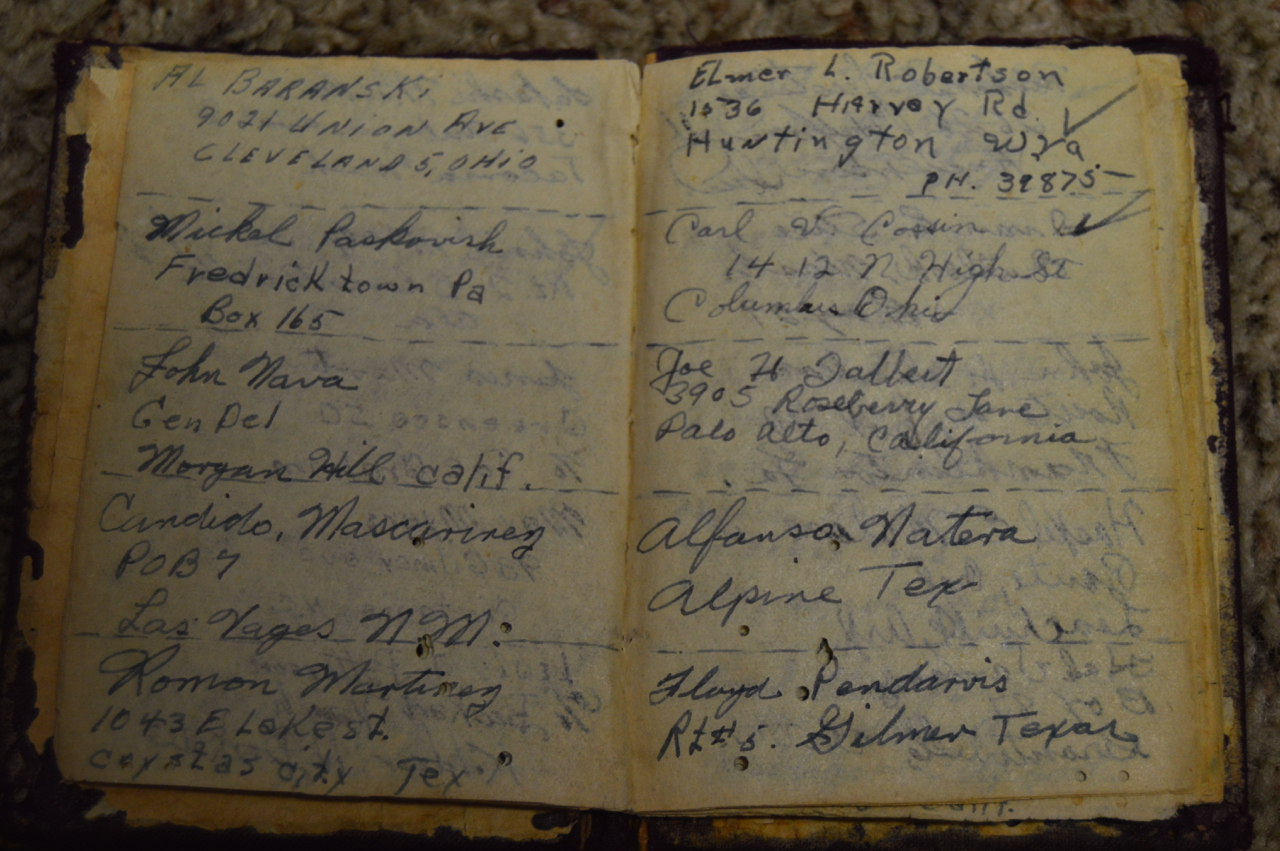 AL BARANSKi
9021 UNION AVE
CLEVELAND 5, OHIO
Mickel Paskovish
Fredricktown Pa
Box 165
John Nava
Gen Del
Morgan Hill calif.
Candido, Mascarinez
POB 7
Las Vages N.M.
Romon Martinez
1043 E Lake st.
crystas city Tex
ELmer L. Robertson
1536 HArvey Rd.
Huntington WVa.
PH. 39875
Carl V.
1412 N High St
Columbus Ohio
Joe H Talbert
3905 Roseberry Lane
Palo Alto, California
Alfanso Natera
Alpine Tex
Floyd Pendarvis
Rt # 5. Gilmer Texas